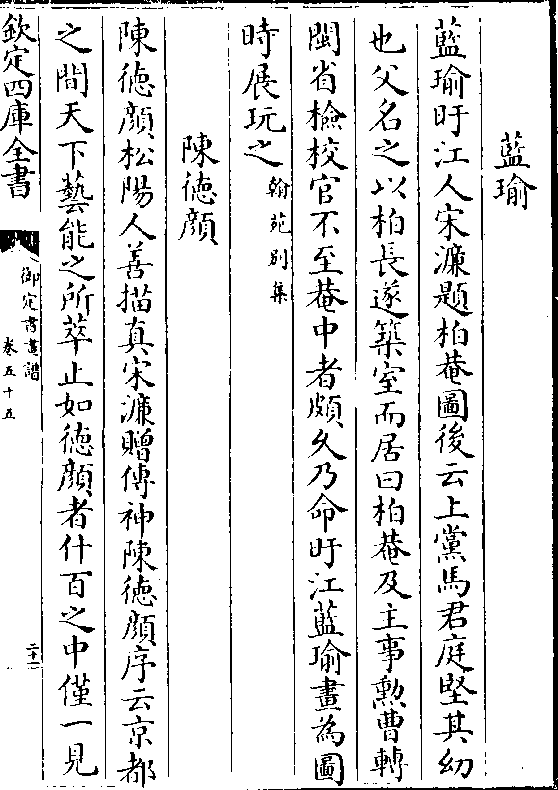 藍瑜
藍瑜盱江人宋濂題柏菴圖後云上黨馬君庭堅其幼
也父名之以柏長遂築室而居曰柏菴及主事勲曹轉
閩省檢校官不至菴中者頗久乃命盱江藍瑜畫為圖
時展玩之翰苑别集
陳徳顔
陳徳顔松陽人善描真宋濂贈傳神陳徳顔序云京都
之間天下藝能之所萃止如徳顔者什百之中僅一見
欽定四庫全書
御定書畫譜
卷五十五
二十一